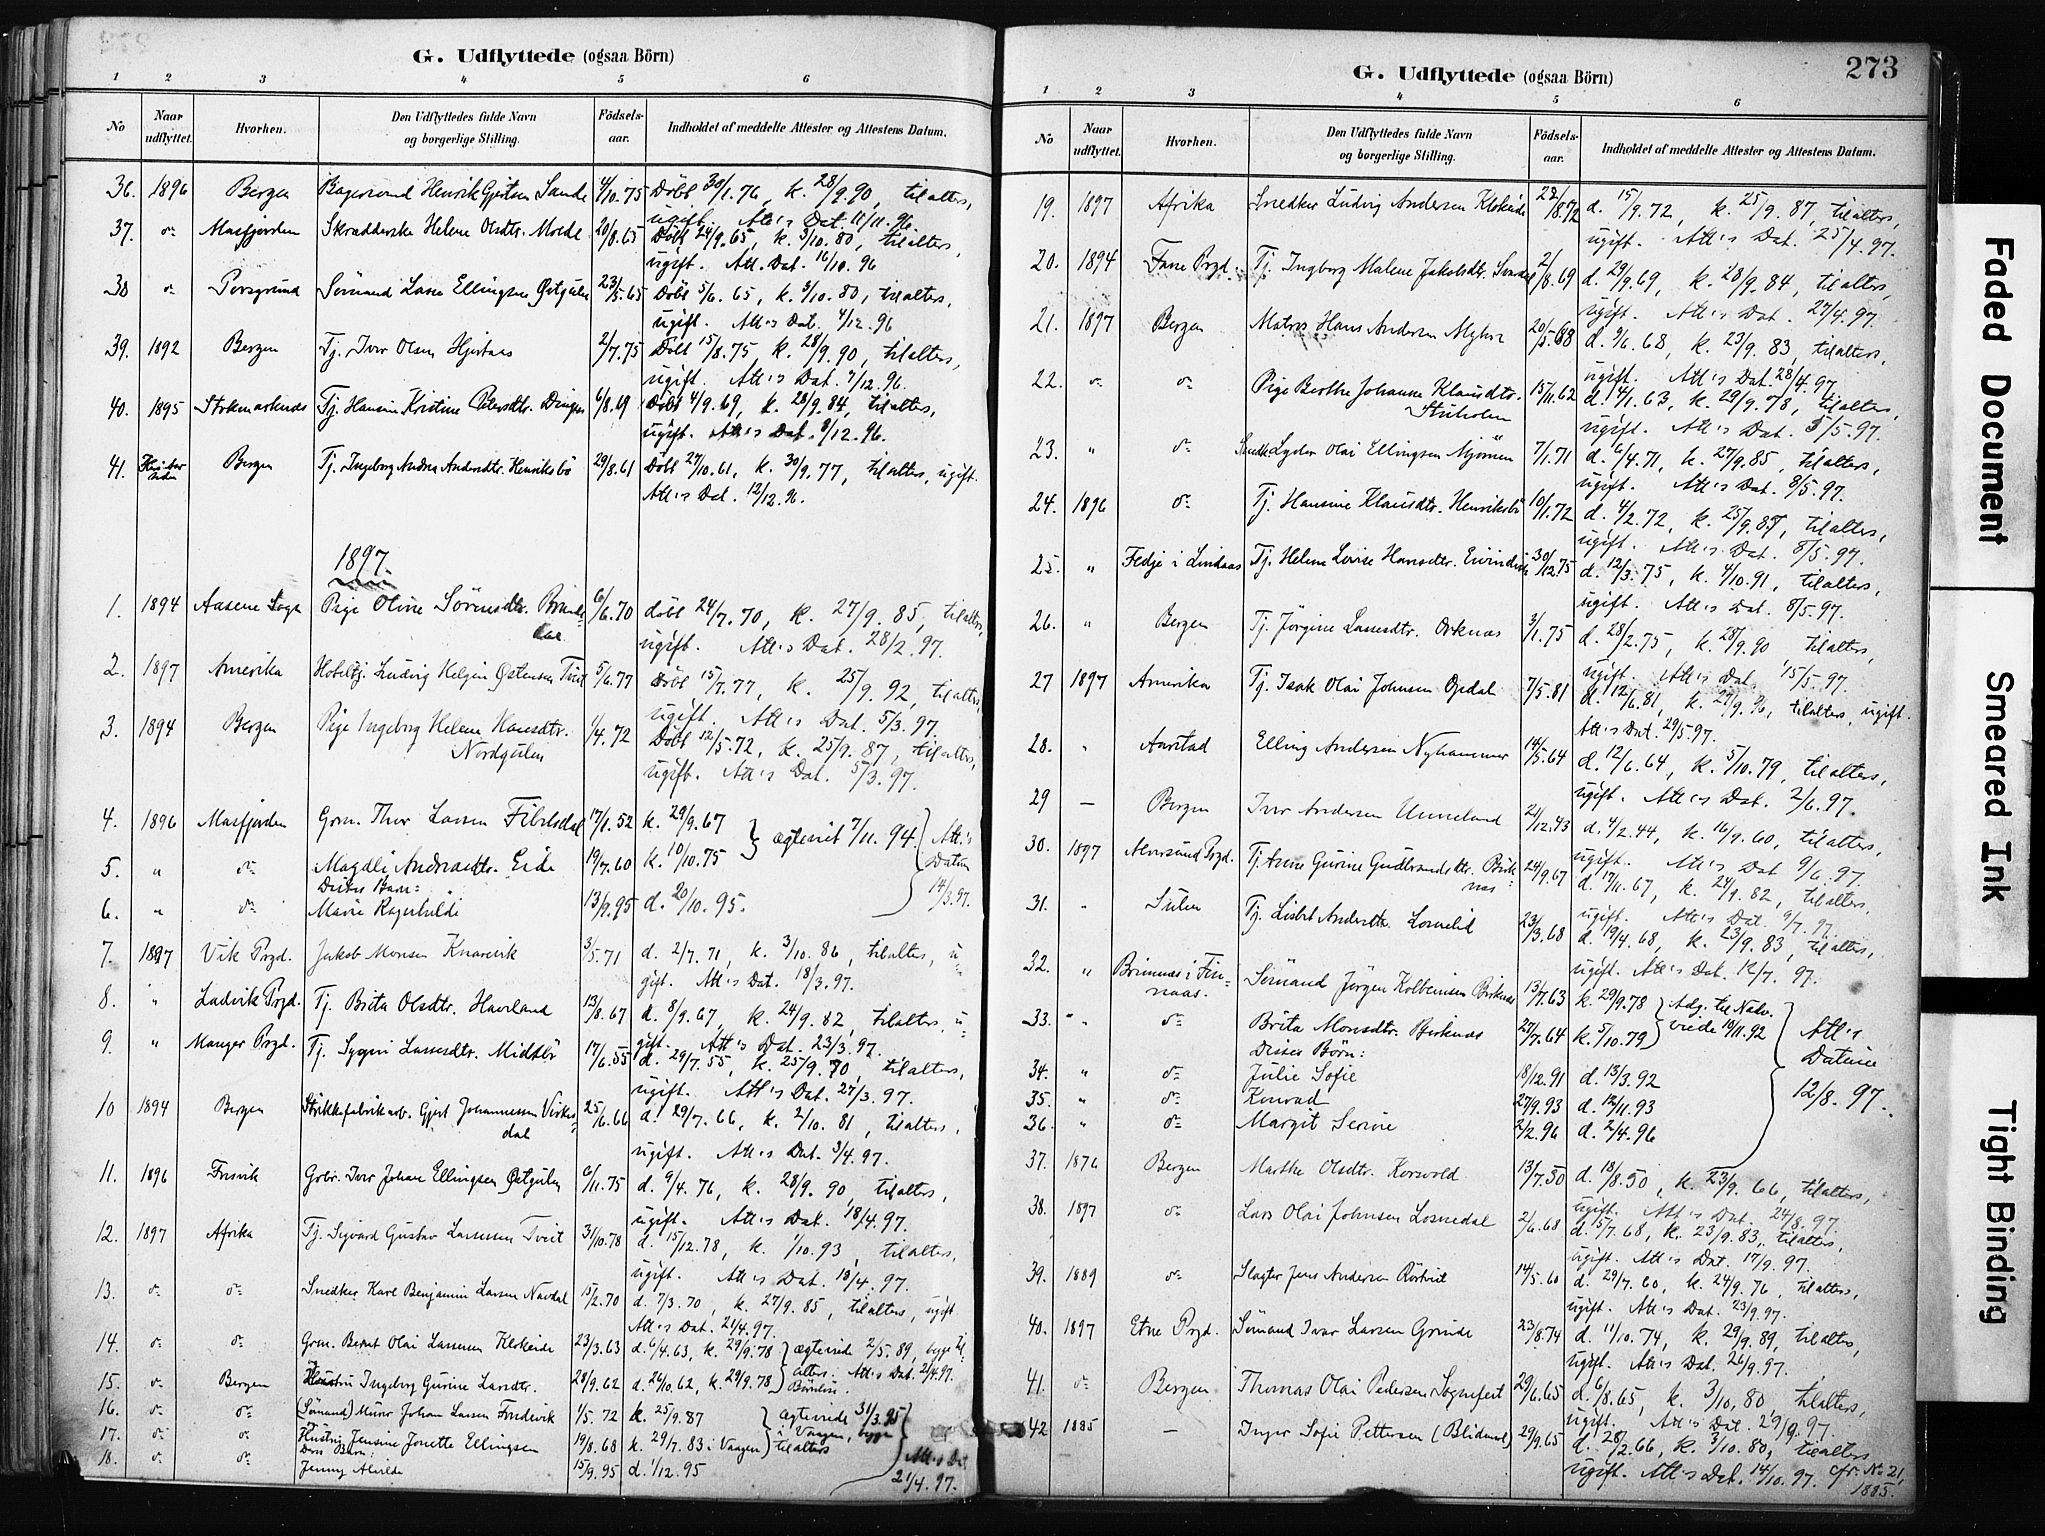 G. Udflyttede (ogsaa Börn)
1 2 3 4 5 6
No Naar udflyttet. Hvorhen. Den Udflyttedes fulde Navn og borgerlige Stilling. Födsels-aar. Indholdet af meddelte Attester og Attestens Datum.
36. 1896 Bergen Henrik Gjertsen Sande 4/10.75 Döbt 30/1.76, k. 28/9.90, til alters,
ugift. Att's Dat. 11/11.96.
37. do Masfjorden Skrædderske Helene Olsdtr. Molde 20/8.65 Döbt 24/9.65, k. 3/10.80, til alters,
ugift. Att. Dat. 16/10.96
38 do Porsgrund Sömand Lasse Ellingsen Östgulen 23/5.65 Döbt 5/6.65, k. 3/10.80, til alters,
ugift. Att's Dat. 4/12.96
39. 1892 Bergen Tj. Iver Olsen Hjertaas 2/7.75 Döbt 15/8.75, k. 28/9.90, til alters,
ugift. Att's Dat. 7/12.96.
40. 1895 Stokmarknæs Tj. Hansine Kristine Petersdtr. 6/8.69 Döbt 4/9.69, k. 28/9.84, til alters,
ugift. Att's Dat. 8/12.96.
41. Bergen Tj. Ingeborg Andrea Andersdtr. Henriksbö 29/8.61 Döbt 27/10.61, k. 30/9.77, til alters, ugift.
Att's Dat. 12/12.96.
1897.
1. 1894 Aasene Sogn Pige Oline Sörensdtr. 6/6.70 döbt 24/7.70, k. 27/9.85, til alters,
dal ugift. Att's Dat. 28/2.97.
2. 1897 Amerika Hoteltj. Ludvig Helgin Östensen Tveit 5/6.77 Döbt 15/7.77, k. 25/9.92, til alters,
ugift. Att's Dat. 5/3.97.
3. 1894 Bergen Pige Ingeborg Helene Hansdtr. 1/4.72 Döbt 12/5.72, k. 25/9.87, til alters,
Nordgulen ugift. Att's Dat. 5/3.97.
4. 1896 Masfjorden Grm. Thor Larsen 17/1.52 k. 29/9.67 ægteviet 7/11.94 Att's
5. " do Magdli Andreasdtr. Eide 19/7.60 k. 10/10.75 Datum
Disses Barn: 14/3.97.
6. " do Marie Ragnhilde 13/9.95 d. 20/10.95.
7. 1897 Vik Prgd. Jakob Monsen Knarvik 3/5.71 d. 2/7.71, k. 3/10.86, til alters, u-
gift. Att's Dat. 18/3.97.
8. " Ladvik Prgd. Tj. Brita Olsdtr. Haveland 13/8.67 d. 8/9.67, k. 24/9.82, til alters, u-
gift. Att's Dat. 23/3.97.
9. " Manger Prgd. Tj. Sygni Lassesdtr. Midtbö 17/6.55 d. 29/7.55, k. 25/9.70, til alters,
ugift. Att's Dat. 27/3.97.
10 1894 Bergen Strikkefabrikarb. Gjert Johannessen Virkes- 25/6.66 d. 29/7.66, k. 2/10.81, til alters,
dal ugift. Att's Dat. 3/4.97.
11. 1896 Grbr. Iver Johan Ellingsen Östgulen 6/11.75 d. 9/4.76, k. 28/9.90, til alters,
ugift. Att's Dat. 18/4.97.
12. 1897 Afrika Tj. Sigvard Gustav Larsen Tveit 31/10.78 d. 15/12.78, k. 1/10.93, til alters,
ugift. Att's Dat. 18/4.97.
13. do do Snedker Karl Benjamin Larsen Navdal 15/2.70 d. 7/3.70, k. 27/9.85, til alters, ugift
Att's Dat. 21/4.97.
14. do do Grm. Bernt Olai Lassesen Klekeide 23/3.63 d. 6/4.63, k. 29/9.78 ægteviede 2/5.89, begge til-
15. do Bergen Hustru Ingeborg Gurine Larsdtr. 28/9.62 d. 26/10.62, k. 29/9.78 alters. Att's Dat. 2/4.97.
Börnlöse.
16. do do (Sömand) Johan Larsen 1/5.72 k. 25/9.87 ægteviede 31/3.95
17. do do Hustru Jensine Jonette Ellingsen 19/8.68 k. 29/7.83 i Vaagen i Vaagen, begge
Ders Barn: til alters
18. do do Jenny Alvilde 15/9.95 d. 1/12.95 Att's Dat
21/4.97.
273
G. Udflyttede (ogsaa Börn)
1 2 3 4 5 6
No Naar udflyttet. Hvorhen. Den Udflyttedes fulde Navn og borgerlige Stilling. Födsels-aar. Indholdet af meddelte Attester og Attestens Datum.
19. 1897 Afrika Snedker Ludvig Andersen Klekeide 22/8.72 d. 15/9.72, k. 25/9.87, til alters,
ugift. Att's Dat. 25/4.97.
20. 1894 Fane Prgd. Tj. Ingborg Malene Jakobsdtr. 2/8.69 d. 29/9.69, k. 28/9.84, til alters,
ugift. Att's Dat. 27/4.97.
21. 1897 Bergen Matros Hans Andersen Myhre 20/5.68 d. 9/6.68, k. 23/9.83, til alters,
ugift. Att's Dat. 28/4.97
22. do do Pige Berthe Johanne Klausdtr. 15/11.62 d. 4/1.63, k. 29/9.78, til alters,
Stuholen ugift. Att's Dat. 5/5.97.
23. " do Snedk. Lyder Olai Ellingsen Mjömen 7/1.71 d. 6/4.71, k. 27/9.85, til alters,
ugift. Att's Dat. 8/5.97.
24. 1896 do Tj. Hansine Klausdtr. Henriksbö 10/1.72 d. 4/2.72, k. 25/9.87, til alters,
ugift. Att's Dat. 8/5.97.
25. " Fedje i Lindaas Tj. Helene Lovise Hansdtr. 30/12.75 d. 12/3.75, k. 4/10.91, til alters,
ugift. Att's Dat. 8/5.97.
26. " Bergen Tj. Jörgine Lassesdtr. Orknæs 3/1.75 d. 28/2.75, k. 28/9.90 til alters,
ugift. Att's Dat 15/5.97.
27 1897 Amerika Tj. Isak Olai Johnsen Opdal 7/5.81 d. 12/6.81, k. 27/9.96, til alters, ugift.
Att's Dat. 29/5.97.
28. " Aarstad Elling Andersen Nyhammer 14/5.64 d. 12/6.64, k. 5/10.79, til alters,
ugift. Att's Dat. 2/6.97.
29 — Bergen Iver Andersen Unneland 21/12.43 d. 4/2.44, k. 16/9.60, til alters,
ugift. Att's Dat 9/6.97.
30. 1897 Alversund Prgd. Tj. Anne Gurine Gudbrandsdtr. Birk- 24/9.67 d. 17/11.67, k. 24/9.82, til alters,
næs ugift. Att's Dat 9/7.97.
31. " Sulen Tj. Lisbet Andersdtr. Losnelid 23/3.68 d. 19/4.68, k. 23/9.83, til alters,
ugift. Att's Dat. 12/7.97.
32. " Brimnæs i Fin-
naas. Sömand Jörgen Kolbeinsen Birknæs 13/7.63 k. 29/9.78 Adg. til Nadv.
33. " do Brita Monsdtr. Birknæs 25/7.64 k. 5/10.79 viede 18/11.92 Att's
Disses Börn: Datum
34. " do Julie Sofie 18/12.91 d. 13/3.92 12/8.97.
35. " do Konrad 27/9.93 d. 12/11.93
36. " do Margit Serine 2/2.96 d. 2/4.96
37. 1876 Bergen Marthe Olsdtr. Korsvold 13/7.50 d. 18/8.50, k. 23/9.66, til alters,
ugift. Att's Dat. 24/8.97.
38. 1897 do Lars Olai Johnsen Losnedal 2/6.68 d. 5/7.68, k. 23/9.83, til alters,
ugift. Att's Dat. 17/9.97.
39. 1889 do Slagter Jens Andersen Rörtveit 14/5.60 d. 29/7.60, k. 24/9.76, til alters,
ugift. Att's Dat. 23/9.97.
40. 1897 Etne Prgd. Sömand Ivar Larsen Grinde 23/8.74 d. 11/10.74, k. 29/9.89, til alters,
ugift. Att's Dat. 26/9.97.
41. do Bergen Thomas Olai Pedersen Sognefest 29/6.65 d. 6/8.65, k. 3/10.80, til alters,
ugift. Att's Dat 29/9.97.
42 1885 — Inger Sofie Pettersen 29/9.65 d. 28/2.66, k. 3/10.80, til alters,
ugift. Att's Dat. 14/10.97. cfr. No 21,
1885.
Faded Document
Smeared Ink
Tight Binding